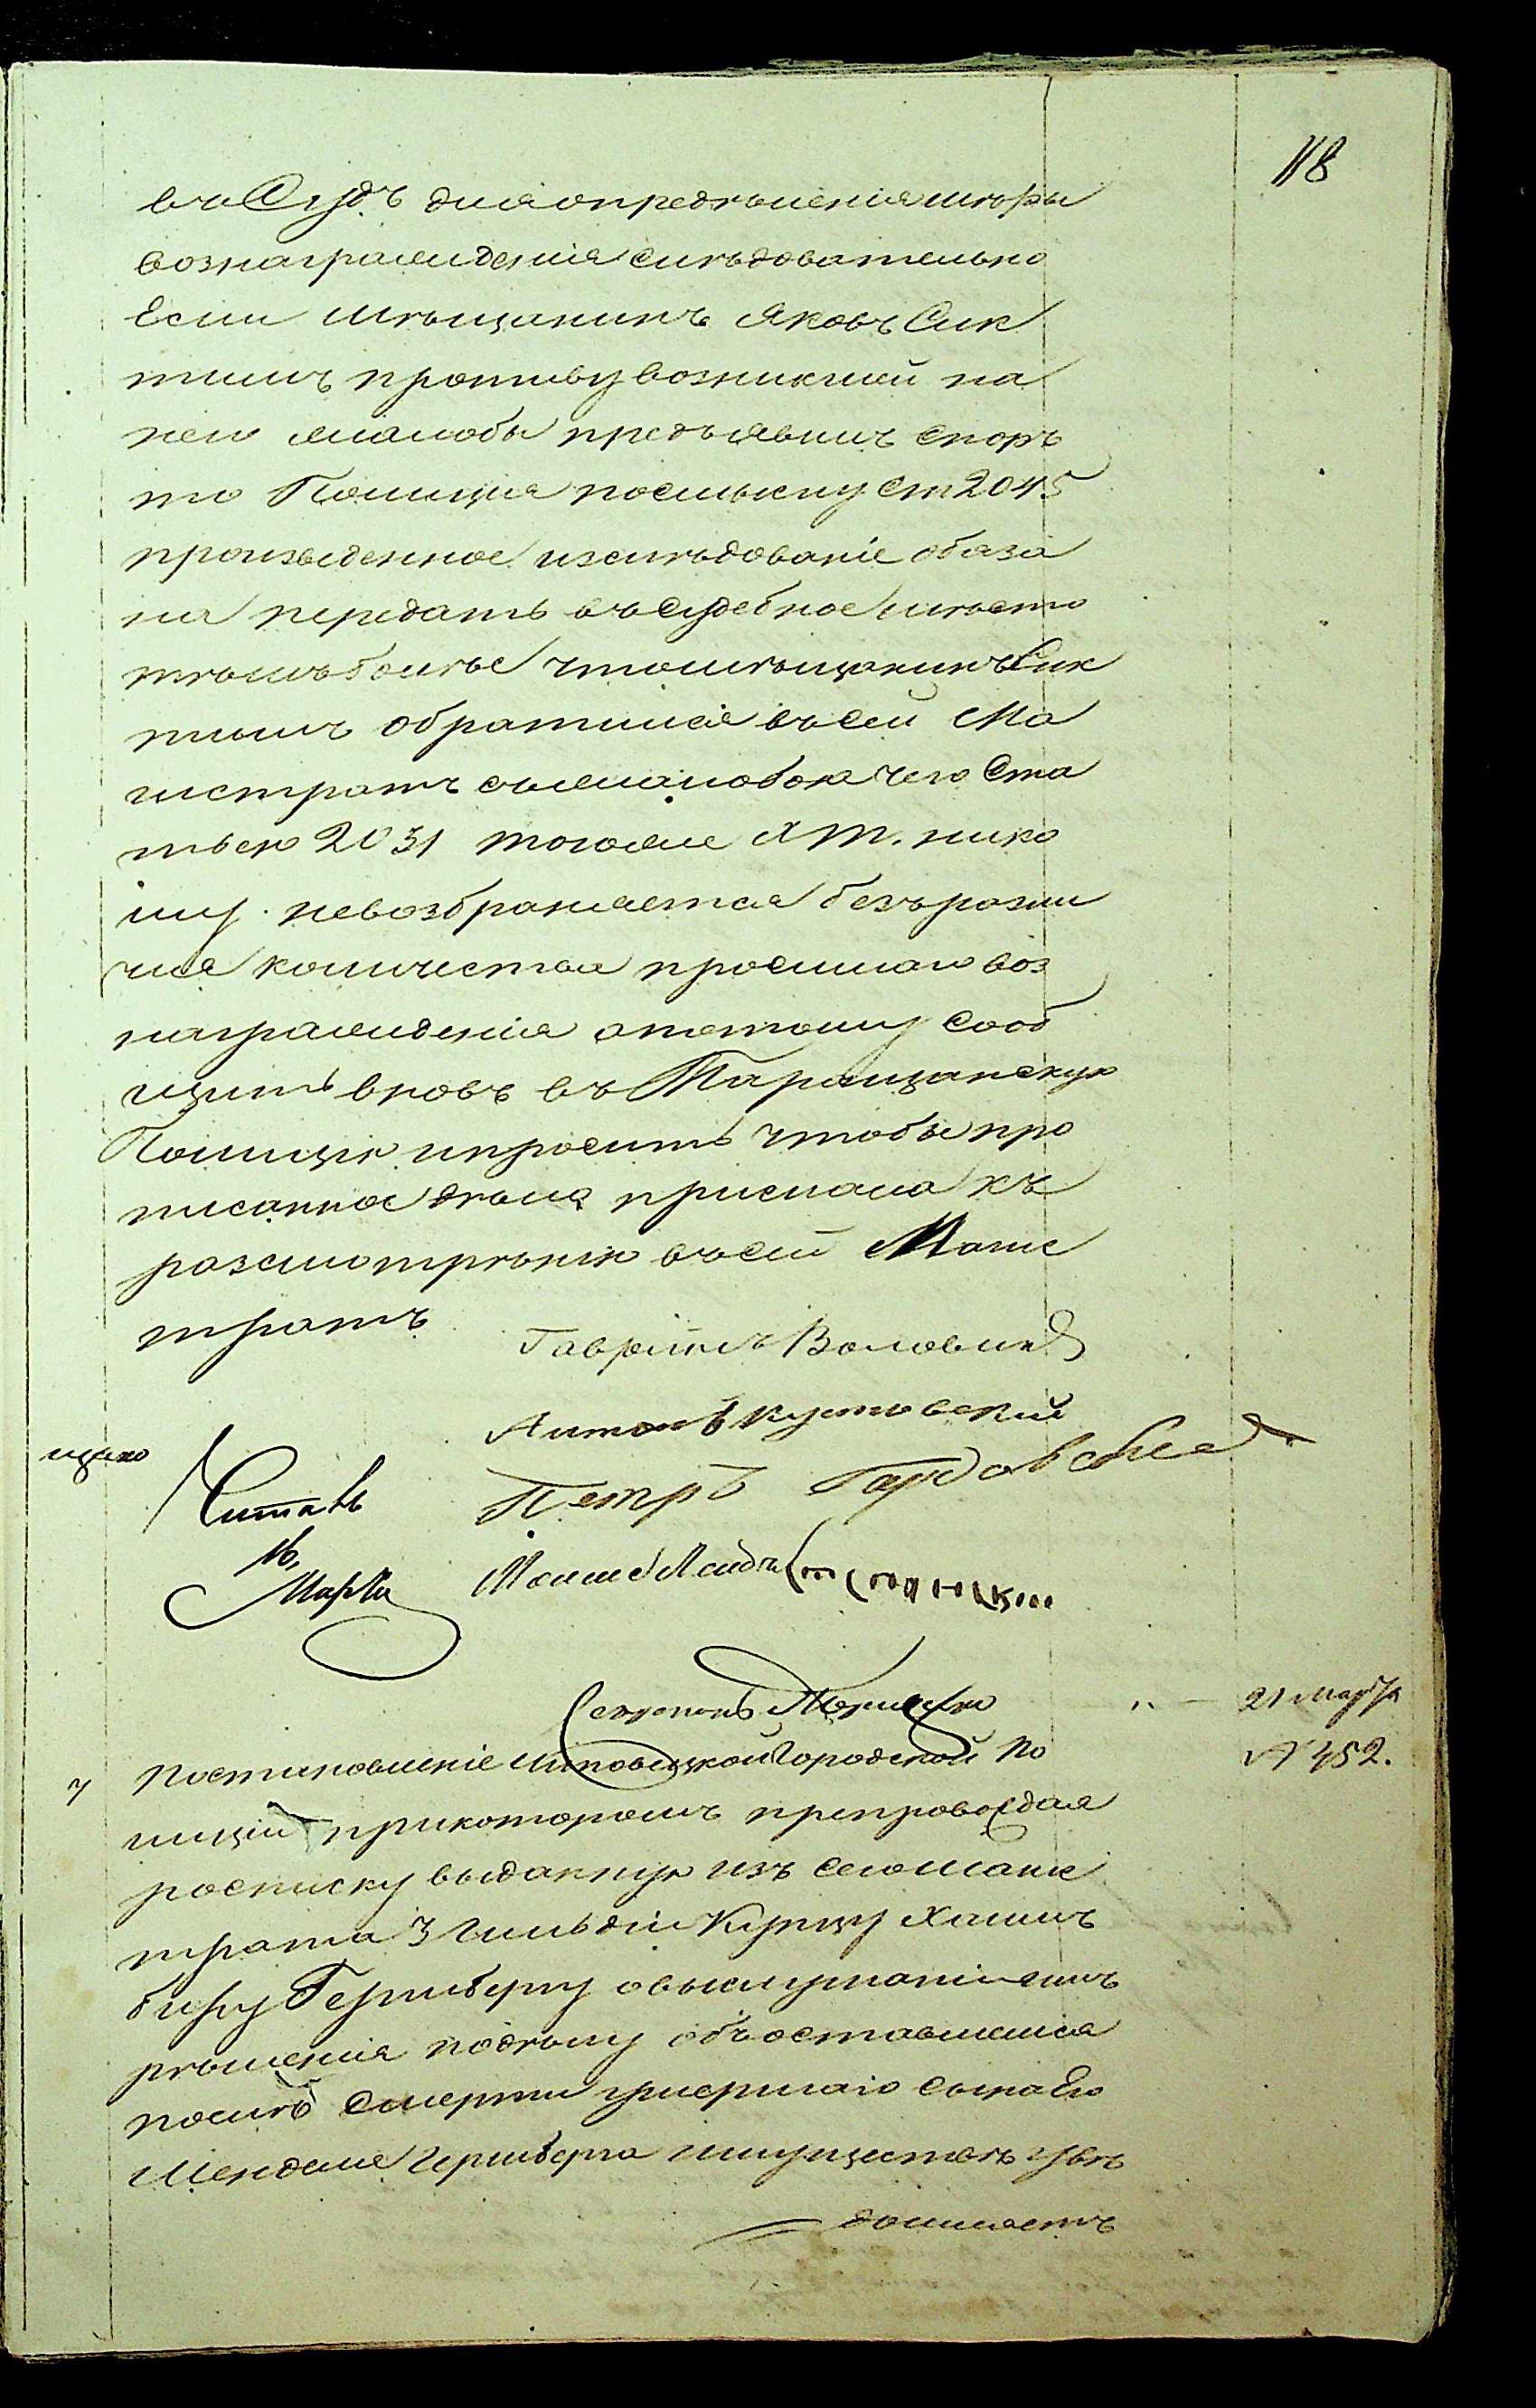 118
въ Судъ для опредѣленія мѣры
вознагражденія слѣдовательно
Если мѣщанинъ Яковъ Сик
тинъ противу возникшей на
него жалобы предъявилъ споръ
то Полиція посилѣ ст 2045
произведенное изслѣдованіе обяза
на передать въ Судебное мѣсто
тѣмъ болѣе что мѣщанинъ Сик
тинъ обратился въ сей Ма
гистратъ съ жалобою чего Ста
тьею 2031 того же X т. нико
му невозбраняется безъ разли
чія количества просимаго воз
награжденія а потому сооб
щить вновь въ Таращанскую
Полицію и просить чтобы про
писанное дѣло прислала къ
разсмотрѣнію въ сей Магис
тратъ
Гавріилъ
Антонъ
щано
Читалъ
Петръ
Секретарь
21 марта
7 Постановленіе Липовецкой Городской По
№ 452.
лиціи при которомъ препровождая
росписку выданную изъ сего Магис
трата 3 гильдіи Купцу Хаимъ
беру Гершбергу о выслушаніи имъ
рѣшенія по дѣлу объ оставшемся
послѣ смерти умершаго сына Его
Менделя Гершберга имуществѣ увѣ
домляетъ